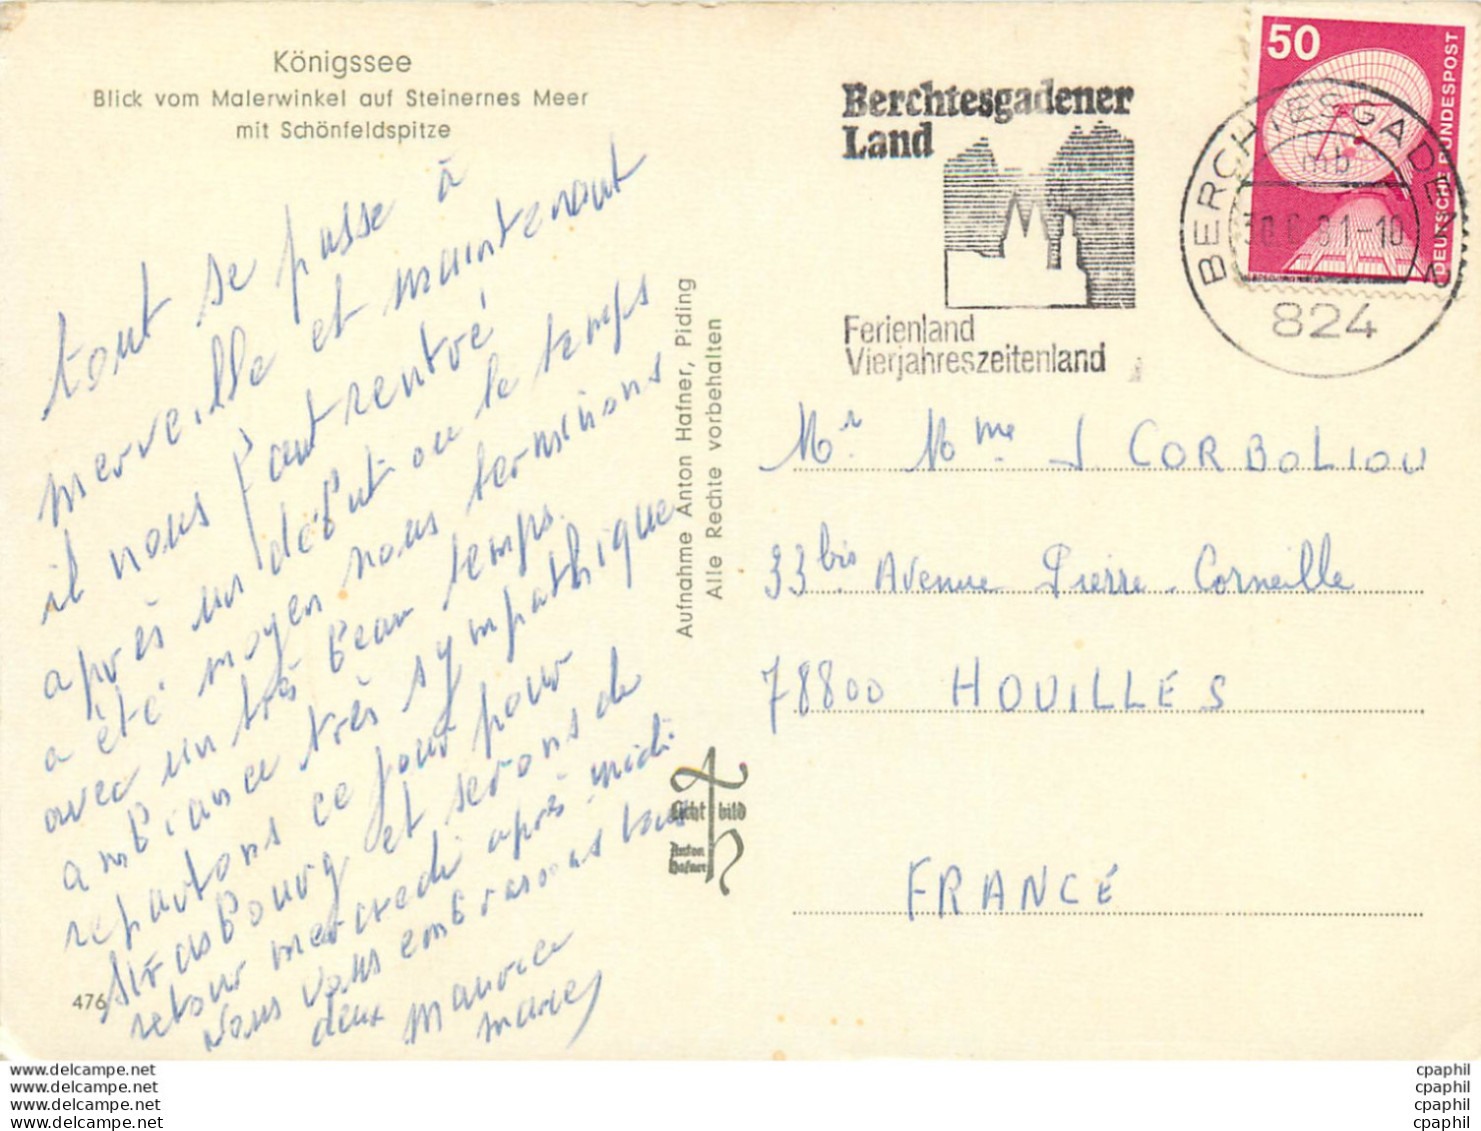 Königssee
Blick vom Malerwinkel auf Steinernes Meer
mit Schönfeldspitze
tout se passe à
merveille et maintenant
il nous faut rentré
après un début ou le temps
a été moyen nous terminons
avec un très beau temps.
ambiance très sympathique
repartons ce jour pour
Strasbourg et serons de
retour mercredi après midi
Nous vous embrassons tous
deux Maurice
476
Aufnahme Anton Hafner, Piding
Alle Rechte vorbehalten
Licht bild
Anton
Hafner
Berchtesgadener
Land
Ferienland
Vierjahreszeitenland
50
DEUTSCHE BUNDESPOST
BERCHTESGADEN 1
mb
30.6.81-10
824
Mr Mme J CORBOLIOU
33bis Avenue Pierre Corneille
78800 HOUILLES
FRANCE
www.delcampe.net
www.delcampe.net
www.delcampe.net
www.delcampe.net
cpaphil
cpaphil
cpaphil
cpaphil